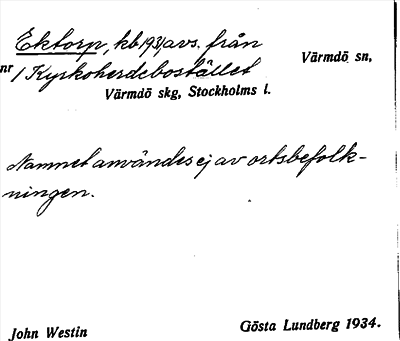 Ektorp, kb 1931, avs. från
nr 1 Kyrkoherdebostället
Värmdö sn,
Värmdö skg, Stockholms l.
Namnet användes ej av ortsbefolk-
ningen.
John Westin
Gösta Lundberg 1934.